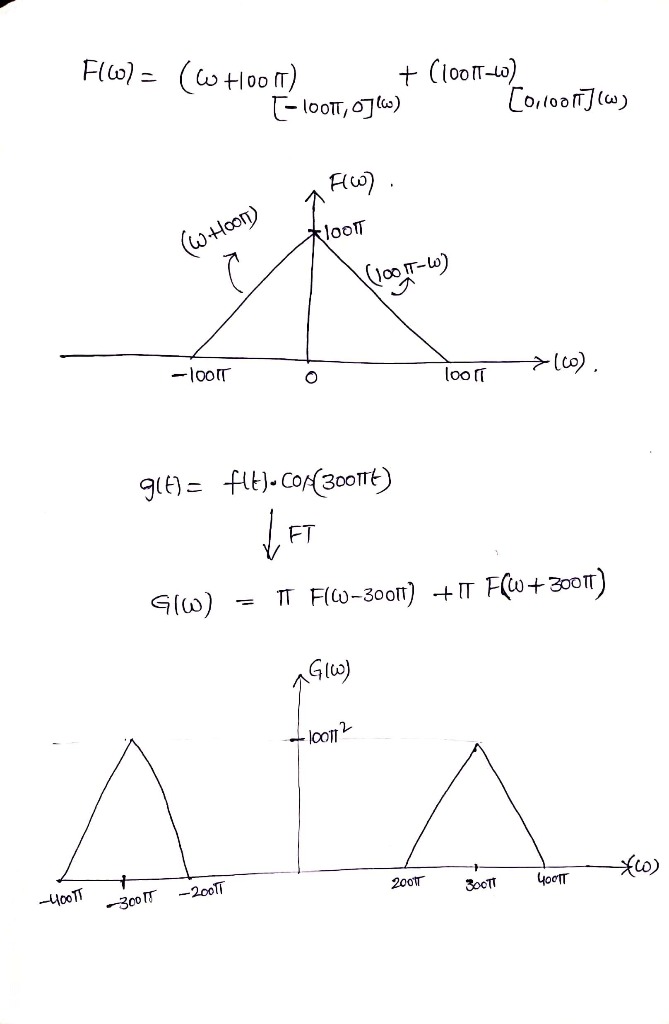 F(ω) = (ω+100π) [-100π,0](ω) + (100π-ω) [0,100π](ω)
F(ω).
(ω+100π)
100π
(100π-ω)
-100π 0 100π (ω).
g(t) = f(t). COS(300πt)
FT
G(ω) = π F(ω-300π) + π F(ω+300π)
G(ω)
100π²
-400π -300π -200π 200π 300π 400π (ω)